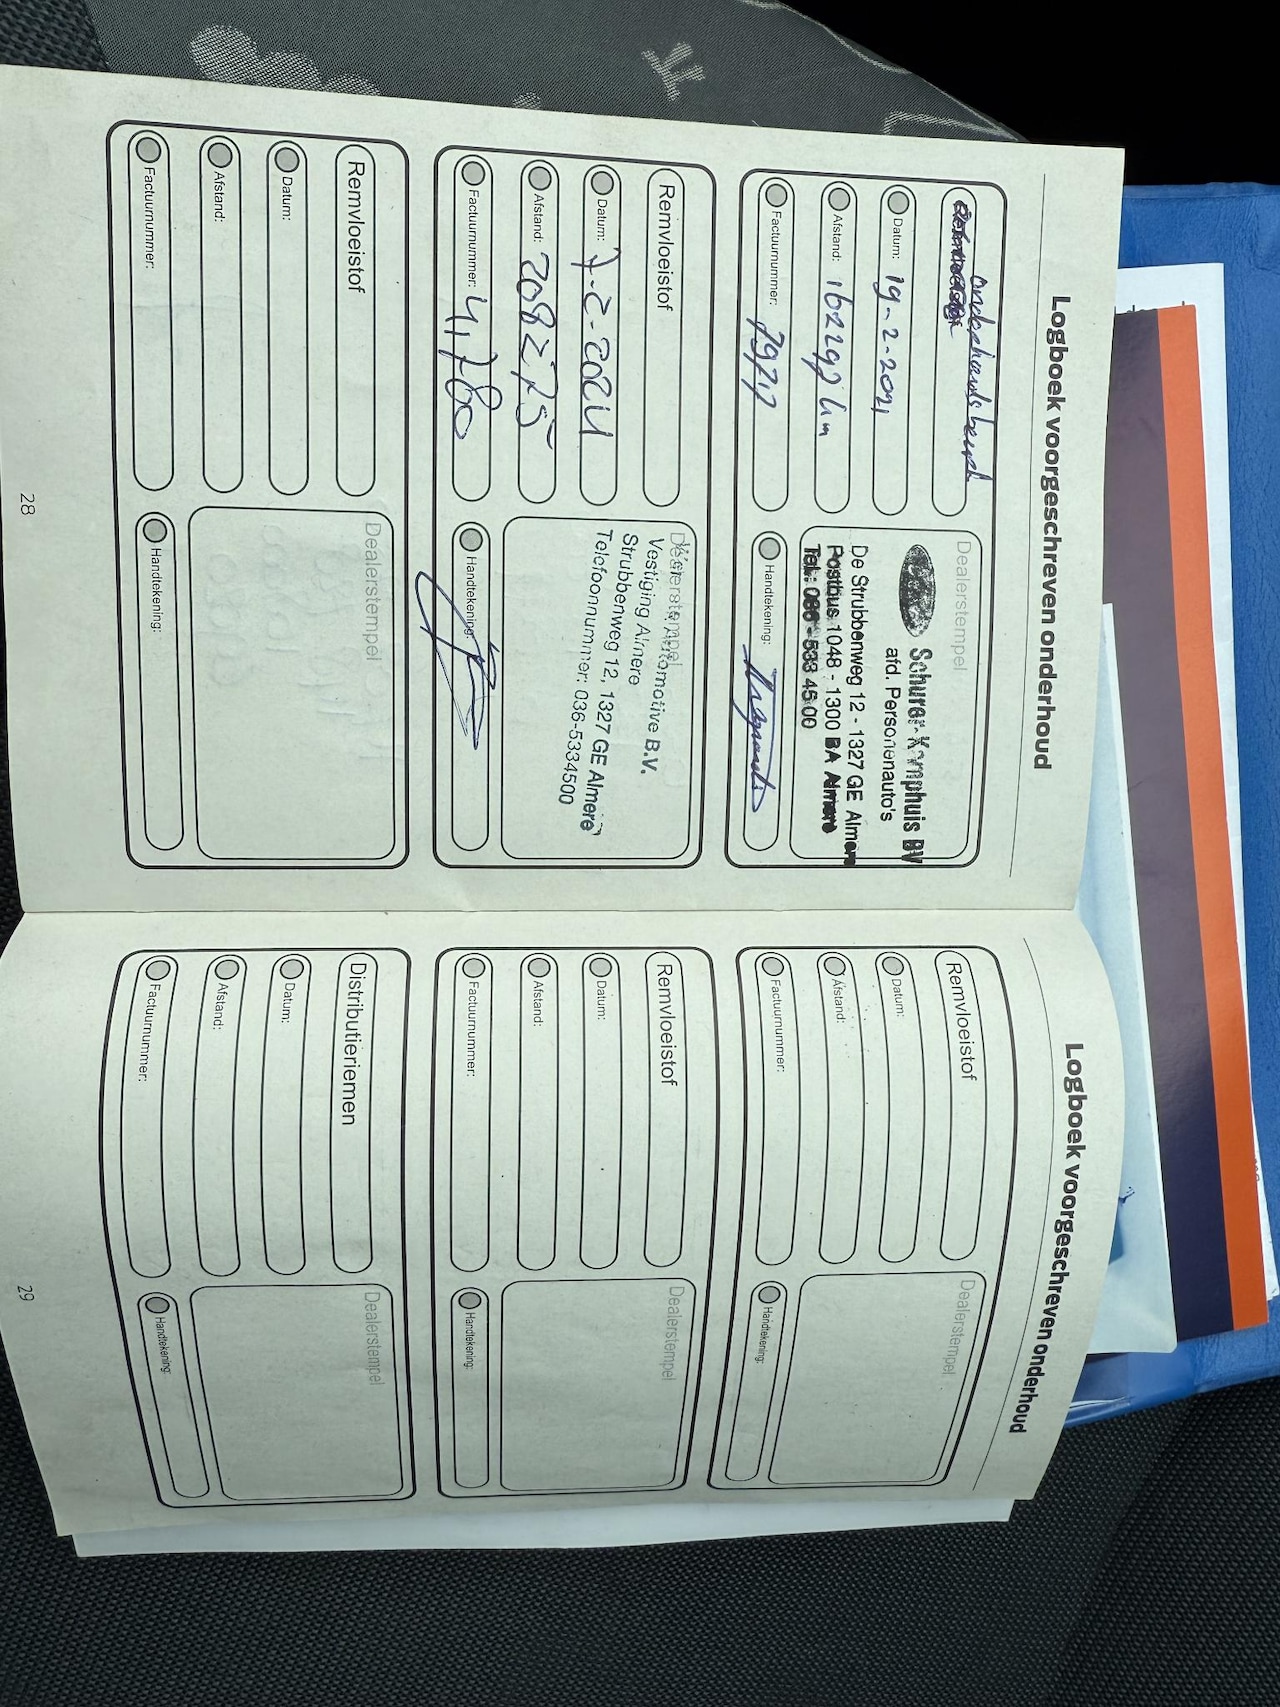 Logboek voorgeschreven onderhoud
onderhoudsbeurt
Datum: 19-2-2021
Afstand: 162292 km
Factuurnummer:
Dealerstempel
Schurer-Kamphuis BV
afd. Personenauto's
De Strubbenweg 12 - 1327 GE Almere
Postbus 1048 - 1300 BA Almere
Tel.: 036 - 533 45 00
Handtekening:
Remvloeistof
Datum: 7-2-2024
Afstand: 208275
Factuurnummer: 41780
Dealerstempel
Automotive B.V.
Vestiging Almere
Strubbenweg 12, 1327 GE Almere
Telefoonnummer: 036-5334500
Handtekening:
Remvloeistof
Datum:
Afstand:
Factuurnummer:
Dealerstempel
Handtekening:
28
Logboek voorgeschreven onderhoud
Remvloeistof
Datum:
Afstand:
Factuurnummer:
Dealerstempel
Handtekening:
Remvloeistof
Datum:
Afstand:
Factuurnummer:
Dealerstempel
Handtekening:
Distributieriemen
Datum:
Afstand:
Factuurnummer:
Dealerstempel
Handtekening:
29